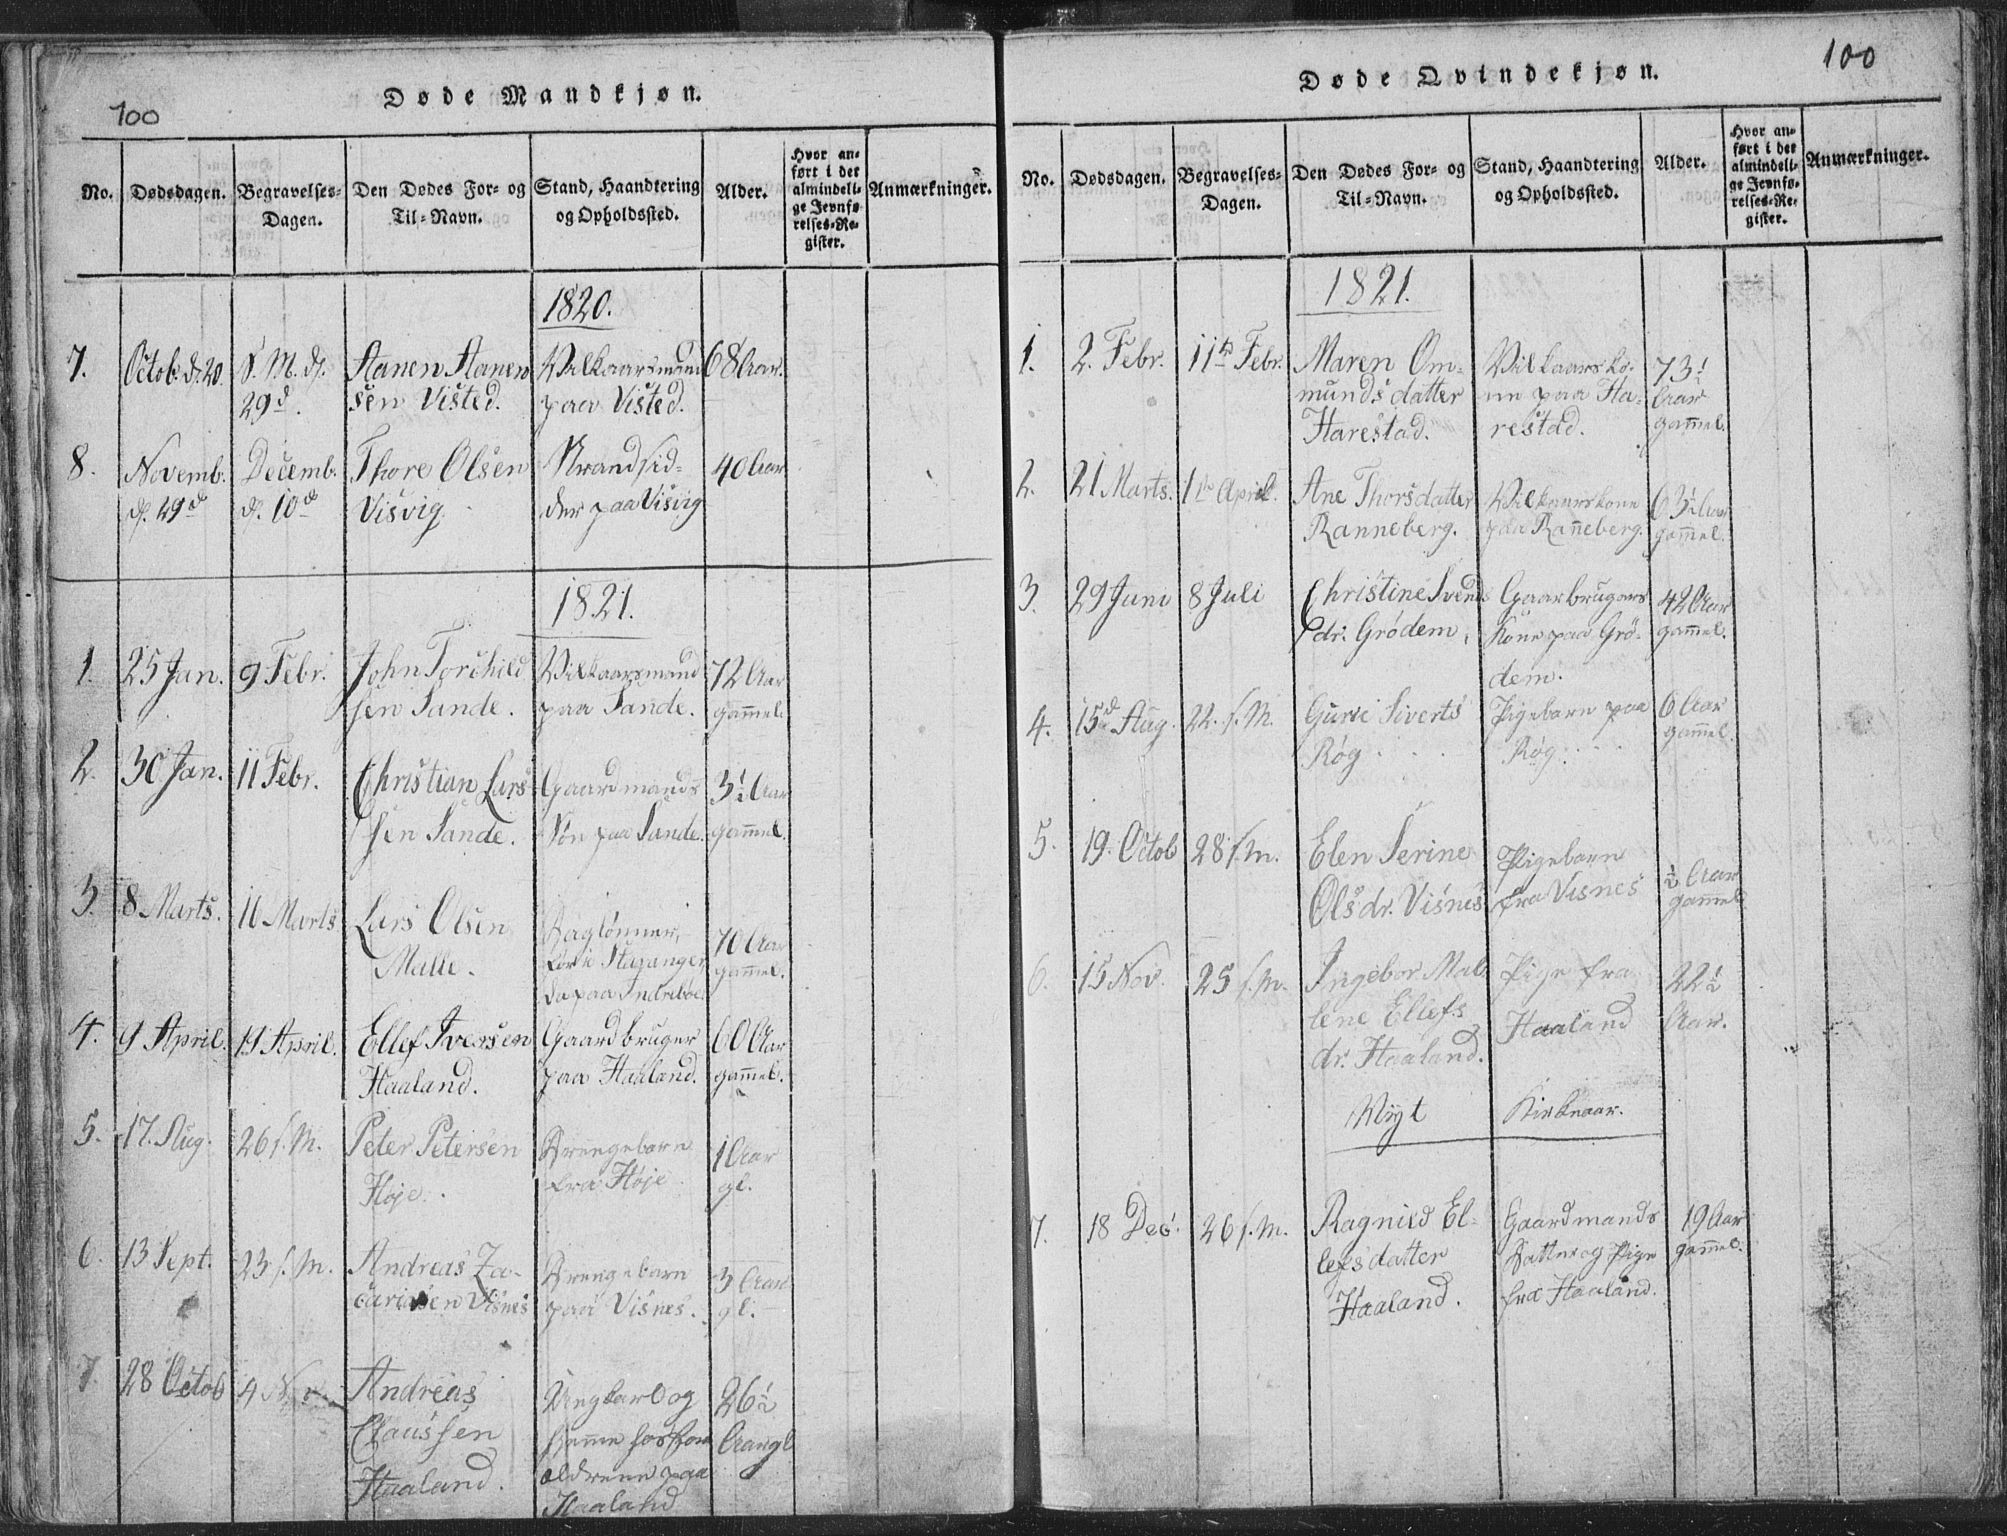 100
Døde Mandkjøn.
No.
Dødsdagen.
Begravelses-
Dagen.
Den Dødes For- og
Til-Navn.
Stand, Haandtering
og Opholdssted.
Alder.
Hvor an-
ført i det
almindeli-
ge Jevnfø-
relses-Re-
gister.
Anmærkninger.
1820.
7.
Octob. d. 20.
S. M. d.
29d.
Aanen Aanen
sen Visted.
Vilkaarsmand
paa Visted.
68 Aar.
8.
Novemb.
d. 29d
Decemb.
d. 10d
Thore Olsen
Visvig
Strandsid-
der paa Visvig
40 Aar
1821.
1.
25 Jan.
9 Febr.
John Torchild
sen Sande.
Vilkaarsmand
paa Sande.
72 Aar
gammel.
2.
30 Jan.
11 Febr.
Christian Lars
sen Sande.
Gaardmands
Søn paa Sande.
3½ Aar
gammel.
3.
8 Marts.
16 Marts
Lars Olsen
Malle.
Daglønner,
70 Aar
gammel.
4.
9 April.
19 April.
Ellef Iversen
Haaland.
Gaardbruger
paa Haaland.
60 Aar
gammel.
5.
17. Aug.
26 s. M.
Peter Petersen
Høje.
Drengebarn
fra Høje
1 Aar
gl.
6.
13 Sept.
23 s. M.
Andreas Za-
cariasen Visnes
Drengebarn
paa Visnes.
3 Aar
gl.
7.
28 Octob
4 Nov.
Andreas
Claussen
Haaland.
Ungkarl og
hjemme hos For
ældrene paa
Haaland
26½
Aar gl
100
Døde Qvindekjøn.
No.
Dødsdagen.
Begravelses-
Dagen.
Den Dødes For- og
Til-Navn.
Stand, Haandtering
og Opholdssted.
Alder.
Hvor an-
ført i det
almindeli-
ge Jevnfø-
relses-Re-
gister.
Anmærkninger.
1821.
1.
2. Febr.
11te Febr.
Maren Om-
munds datter
Harestad.
Vilkaarsko-
ne paa Ha-
restad.
73½
Aar
gammel.
2.
21 Marts.
1te April.
Ane Thorsdatter
Ranneberg.
Vilkaarskone
paa Ranneberg.
63½ Aar
gammel.
3.
29 Juni
8 Juli
Christine Svends
dr. Grødem,
Gaarbrugers
Kone paa Grø-
dem.
42 Aar
gammel.
4.
15d Aug.
22. s. M.
Gurie Siverts
Røg
Pigebarn paa
Røg.
6 Aar
gammel.
5.
19. Octob
28 s. m.
Elen Serine
Olsdr. Visnes
Pigebarn
fra Visnes
½ Aar
gammel
6.
15 Nov.
25 s. m.
Ingebor Mal-
lene Ellefs
dr. Haaland.
Pige fra
Haaland
22½
Aar.
Nyt
Kirkeaar.
7.
18 Dec.
26 s. M.
Ragnild El-
lefsdatter
Haaland.
Gaardmands
Datter og Pige
fra Haaland.
19 Aar
gammel.